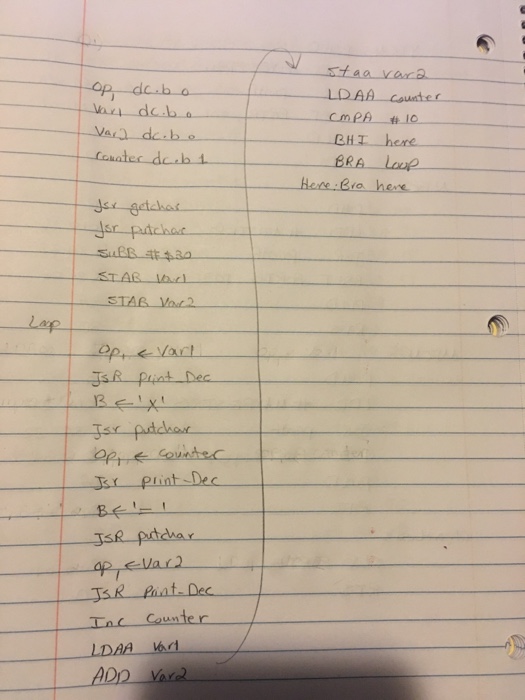 Op, dc.b 0
Var1 dc.b 0
Var2 dc.b 0
Counter dc.b 1
Jsr getchar
Jsr putchar
SUBB #$30
STAB Var1
STAB Var2
Loop
Op, ← Var1
JSR print_Dec
B ← 'X'
Jsr putchar
Op, ← counter
Jsr print-Dec
B ← '='
JSR putchar
op, ← Var2
JSR Print-Dec
Inc Counter
LDAA Var1
ADD Var2
Staa var2
LDAA counter
CMPA #10
BHI here
BRA Loop
Here: Bra here